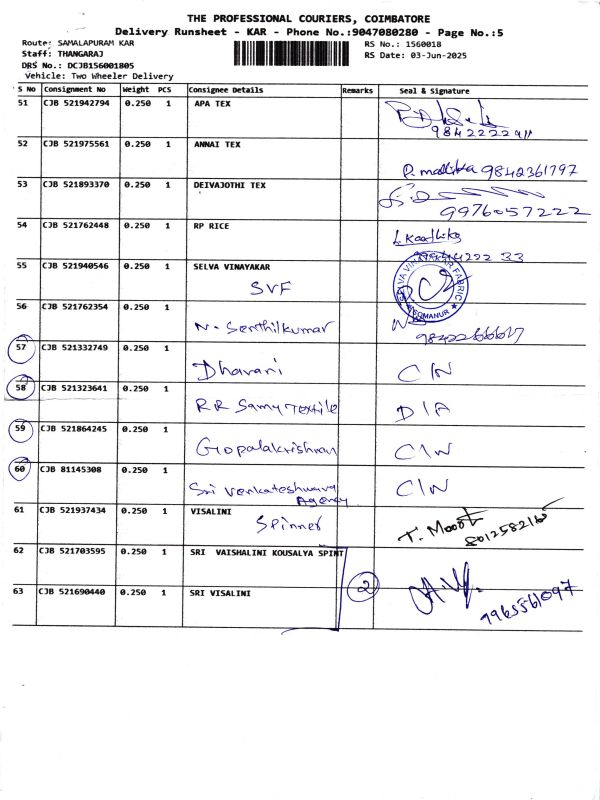 THE PROFESSIONAL COURIERS, COIMBATORE
Delivery Runsheet - KAR - Phone No.:9047080280 - Page No.:5
Route: SAMALAPURAM KAR
Staff: THANGARAJ
DRS No.: DCJB156001805
Vehicle: Two Wheeler Delivery
RS No.: 1560018
RS Date: 03-Jun-2025
S No Consignment No Weight PCS Consignee Details Remarks Seal & Signature
51 CJB 521942794 0.250 1 APA TEX
52 CJB 521975561 0.250 1 ANNAI TEX
P. mallika 9842361797
53 CJB 521893370 0.250 1 DEIVAJOTHI TEX
9976057222
54 CJB 521762448 0.250 1 RP RICE
55 CJB 521940546 0.250 1 SELVA VINAYAKAR
SVF
SELVA VINAYAKAR FABRIC
56 CJB 521762354 0.250 1
N. Senthilkumar
57 CJB 521332749 0.250 1
Dharani C/N
58 CJB 521323641 0.250 1
RR Samy Textile D/A
59 CJB 521864245 0.250 1
Gopalakrishnan C/N
60 CJB 81145308 0.250 1
Sri Venkateshwara C/N
Agency
61 CJB 521937434 0.250 1 VISALINI
Spinner
62 CJB 521703595 0.250 1 SRI VAISHALINI KOUSALYA SPINT
2
63 CJB 521690440 0.250 1 SRI VISALINI
7965561097